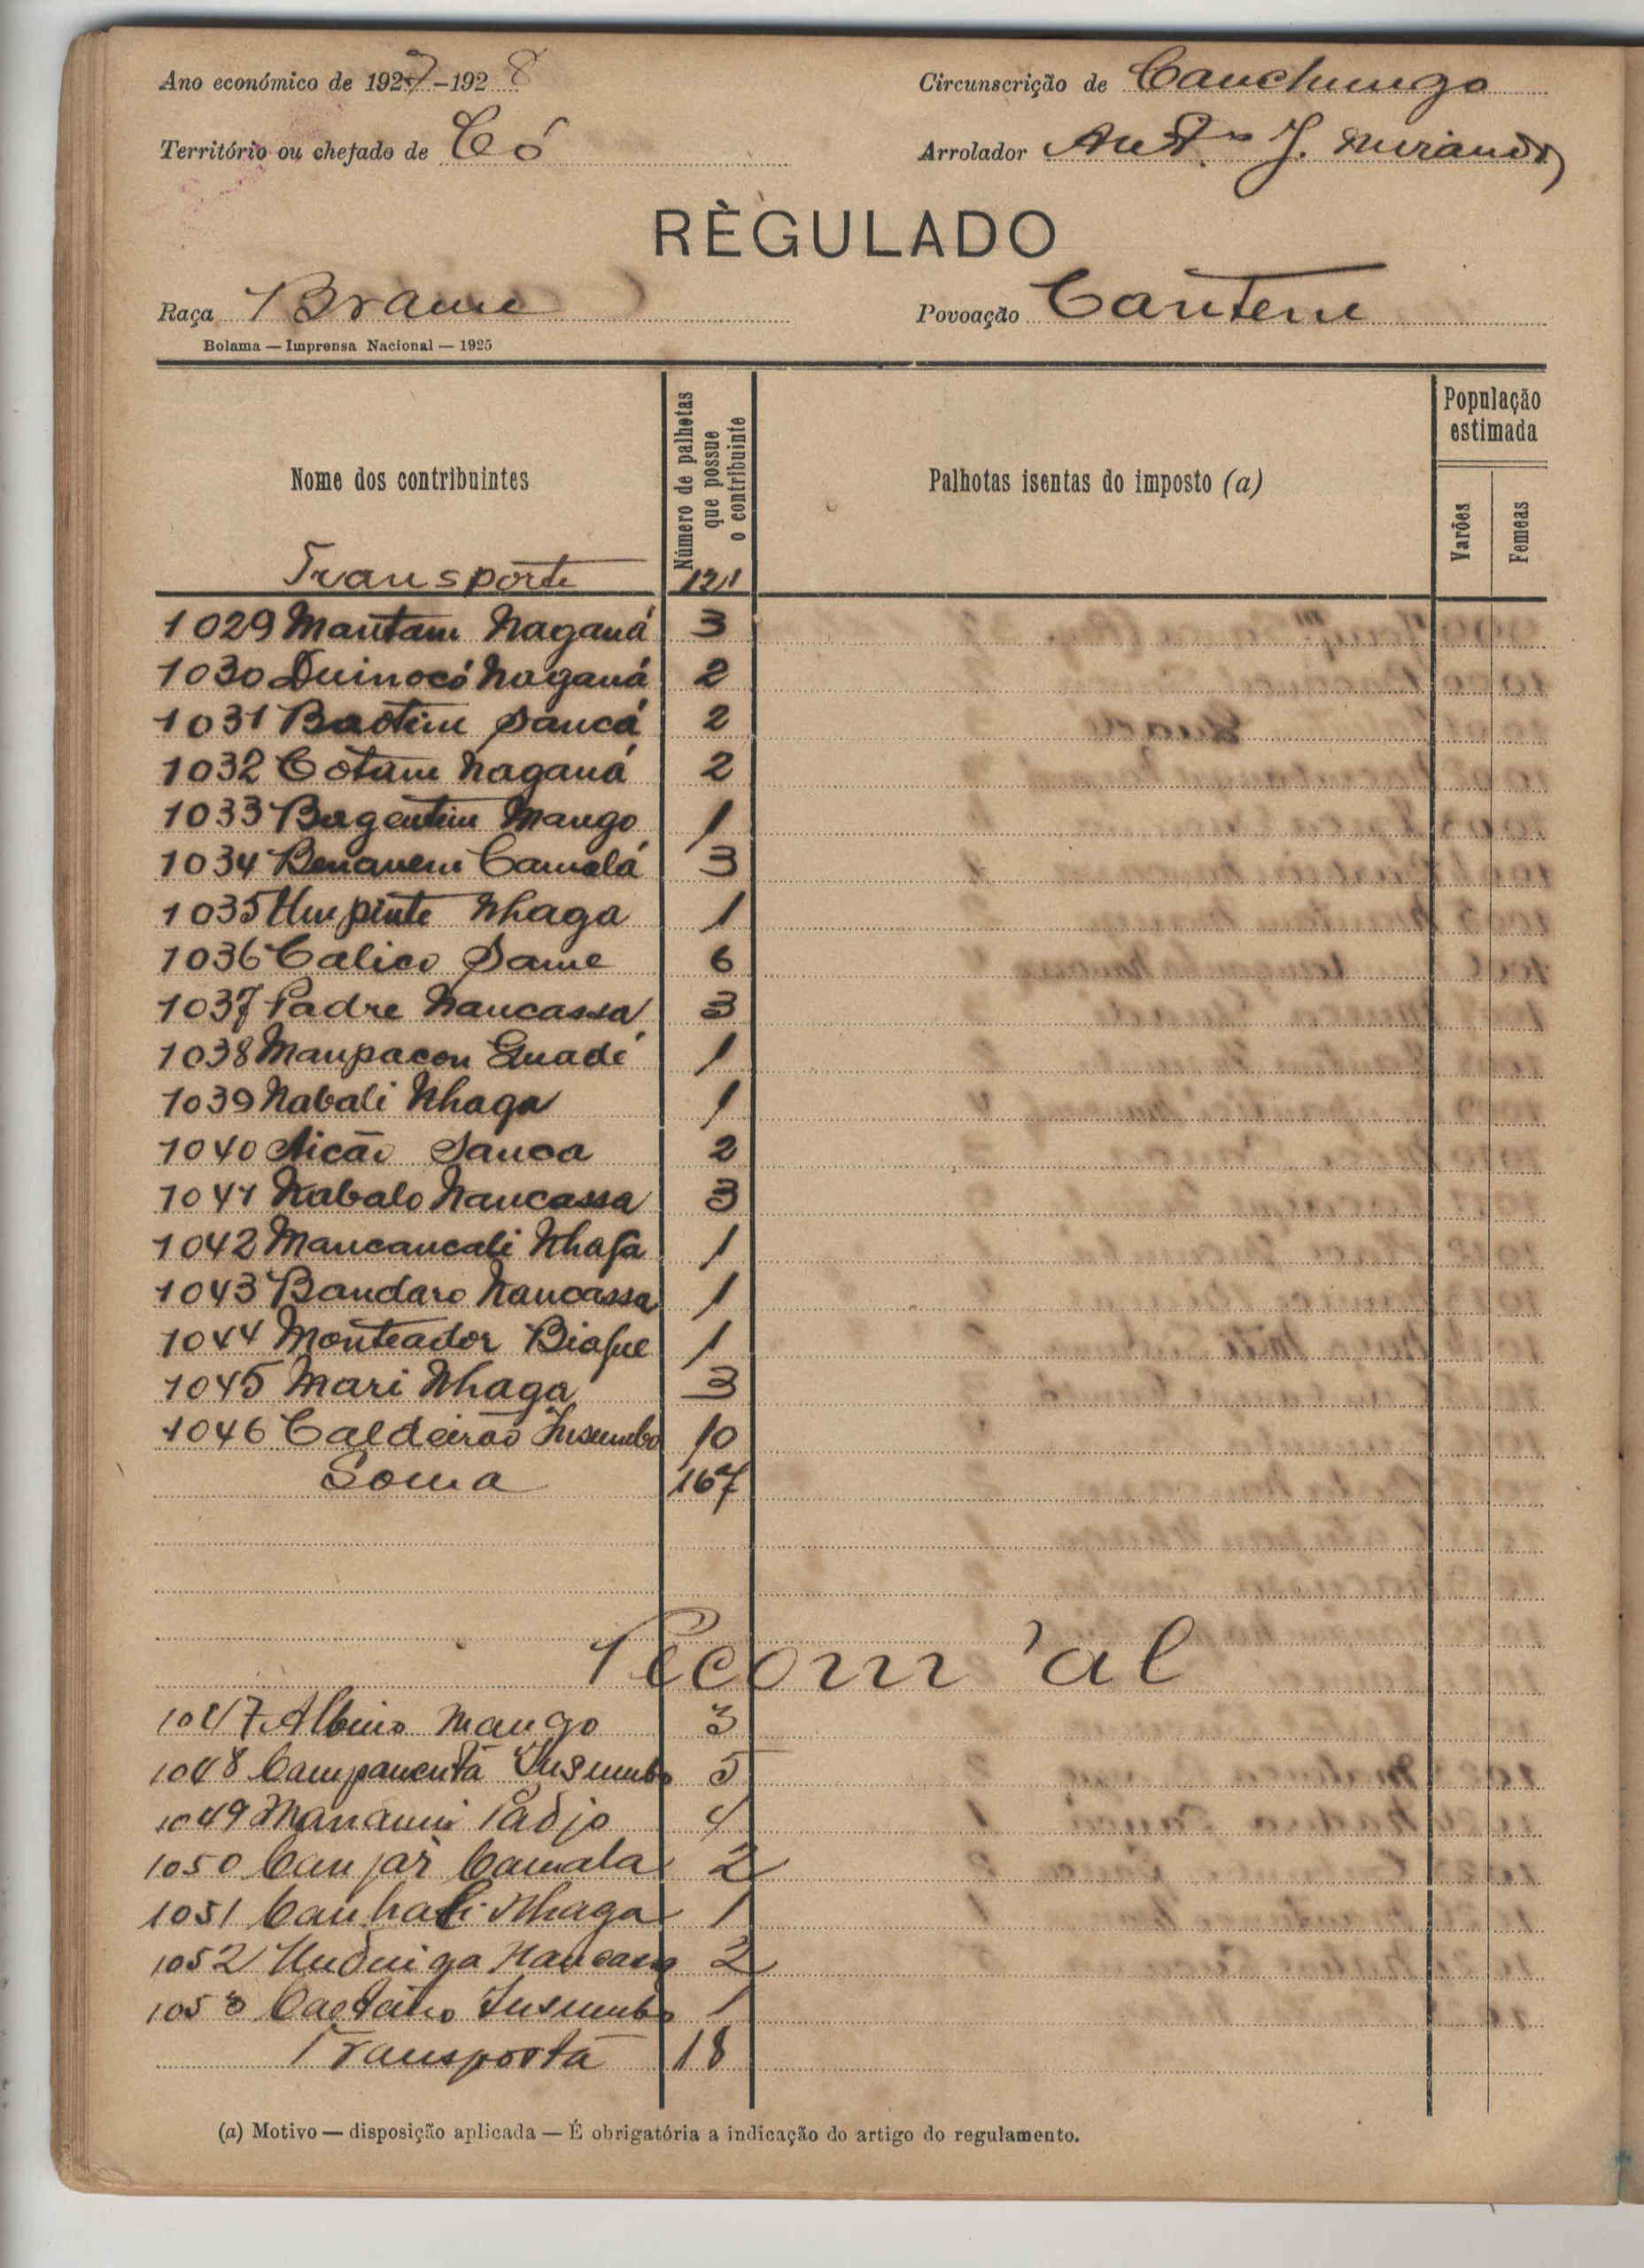 Ano económico de 1927-1928
Circunscrição de Canchungo
Território ou chefado de Có
Arrolador Antº J. Miranda
RÈGULADO
Raça Brame
Povoação Cantene
Bolama — Imprensa Nacional — 1925
Nome dos contribuintes
Número de palhotas que possue o contribuinte
Palhotas isentas do imposto (a)
População estimada
Varões
Femeas
Transporte 121
1029 Mantam Naganá 3
1030 Quinocó Naganá 2
1031 Baotim Sancá 2
1032 Cotam Naganá 2
1033 Bagentim Mango 1
1034 Benanem Camalá 3
1035 Umpinte Nhaga 1
1036 Calico Same 6
1037 Padre Nancassa 3
1038 Manpacon Guadé 1
1039 Nabali Nhaga 1
1040 Aicão Sanca 2
1041 Nabalo Nancassa 3
1042 Mancancali Nhafa 1
1043 Bandaro Nancassa 1
1044 Monteador Biafue 1
1045 Mari Nhaga 3
1046 Caldeirão Insumbo 10
Soma 167
Pecom 'al
1047 Albino Mango 3
1048 Campanenta Insumbo 5
1049 Manami Padjo 4
1050 Canjar Camala 2
1051 Canhali Nhaga 1
1052 Nancassa 2
1053 Caetano Insumbo 1
Transporta 18
(a) Motivo — disposição aplicada — É obrigatória a indicação do artigo do regulamento.